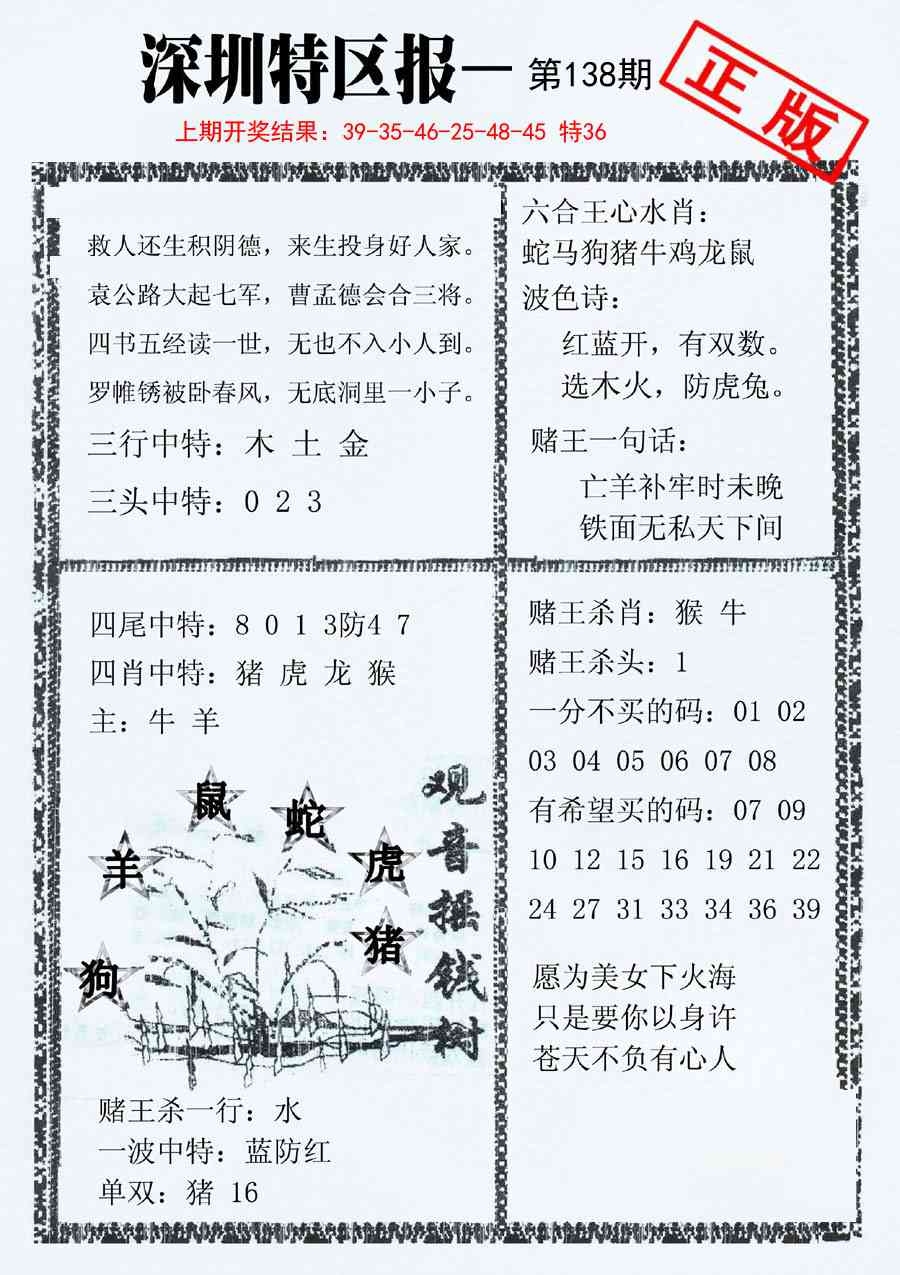 深圳特区报一 第138期
正版
上期开奖结果：39-35-46-25-48-45 特36
救人还生积阴德，来生投身好人家。
袁公路大起七军，曹孟德会合三将。
四书五经读一世，无也不入小人到。
罗帷锈被卧春风，无底洞里一小子。
三行中特：木 土 金
三头中特：0 2 3
六合王心水肖：
蛇马狗猪牛鸡龙鼠
波色诗：
红蓝开，有双数。
选木火，防虎兔。
赌王一句话：
亡羊补牢时未晚
铁面无私天下间
四尾中特：8 0 1 3防4 7
四肖中特：猪 虎 龙 猴
主：牛 羊
鼠
蛇
羊
虎
猪
狗
观音摇钱树
赌王杀一行：水
一波中特：蓝防红
单双：猪 16
赌王杀肖：猴 牛
赌王杀头：1
一分不买的码：01 02
03 04 05 06 07 08
有希望买的码：07 09
10 12 15 16 19 21 22
24 27 31 33 34 36 39
愿为美女下火海
只是要你以身许
苍天不负有心人